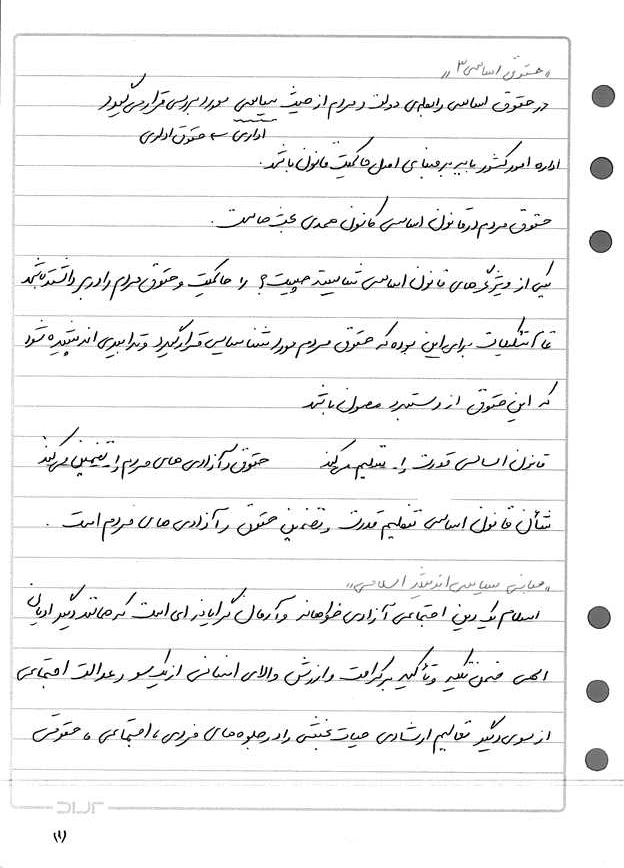 «حقوق اساسی ۳»
در حقوق اساسی رابطه‌ی دولت و مردم از حیث سیاسی مورد بررسی قرار می‌گیرد
اداری ← حقوق اداری
اداره امور کشور باید بر مبنای اصل حاکمیت قانون باشد.
حقوق مردم در قانون اساسی کانون عمده‌ی بحث ماست.
یکی از ویژگی‌های قانون اساسی شایسته چیست؟ را حاکمیت و حقوق مردم را در بر داشته باشد
تمام تشکیلات برای این بوده که حقوق مردم مورد شناسایی قرار گیرد و تدابیری اندیشیده شود
که این حقوق از دستبرد مصون باشد
قانون اساسی قدرت را تنظیم می‌کند حقوق و آزادی‌های مردم را تضمین می‌کند
شأن قانون اساسی تنظیم قدرت و تضمین حقوق و آزادی‌های مردم است.
«مبانی سیاسی اندیشه اسلامی»
اسلام یک دین اجتماعی آزادی‌خواهانه و آرمان‌گرایانه‌ای است که همانند دیگر ادیان
الهی ضمن تکیه و تأکید بر کرامت و ارزش والای انسانی از یک سو و عدالت اجتماعی
از سوی دیگر تعالیم ارشادی حیات‌بخشی را در جلوه‌های فردی، اجتماعی، حقوقی
(۱)